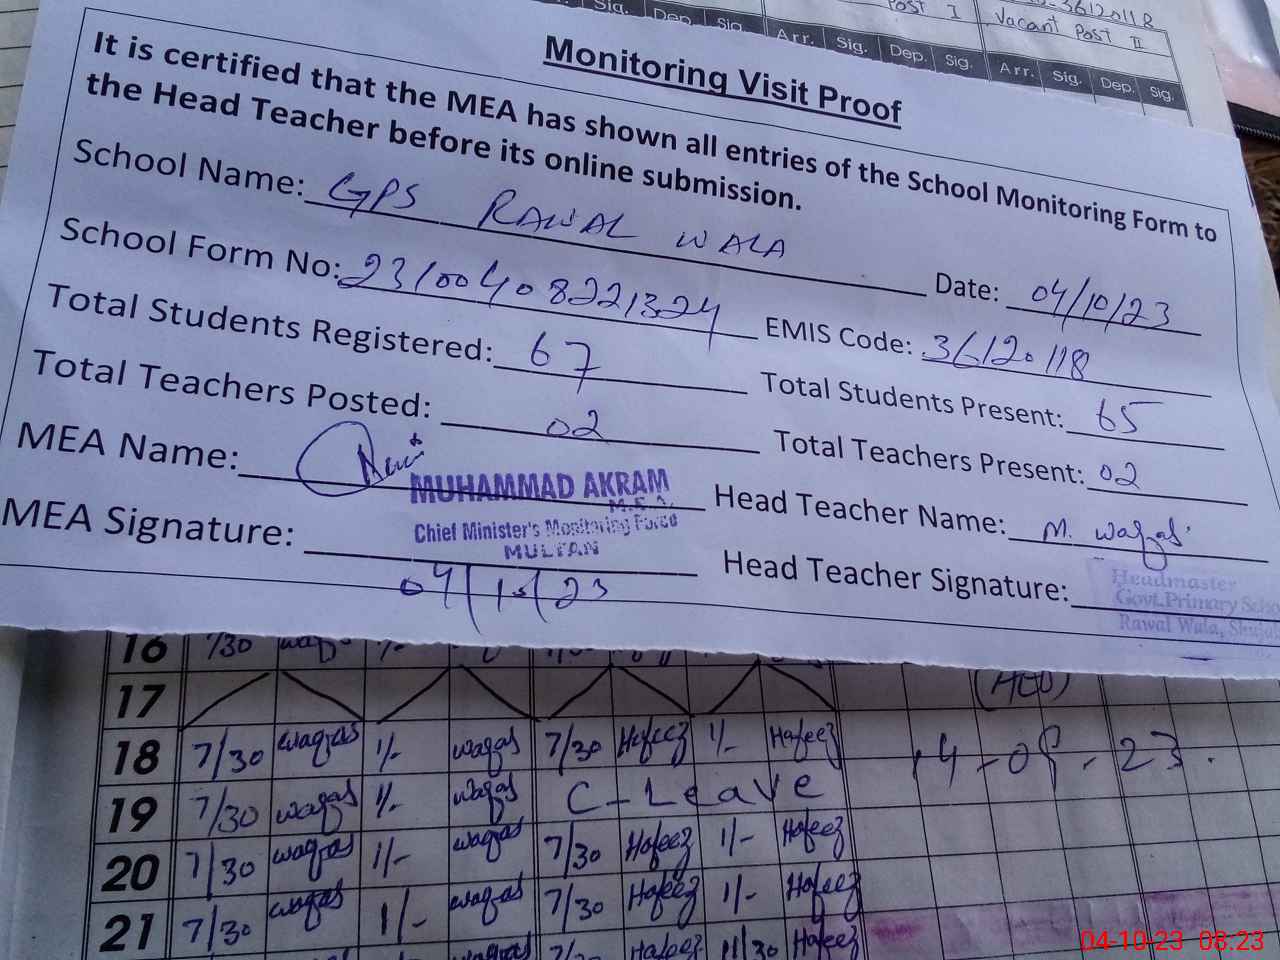 -36120118
Post I Vacant Post II
Sig. Dep. Sig. Arr. Sig. Dep. Sig. Arr. Sig. Dep. Sig.
Monitoring Visit Proof
It is certified that the MEA has shown all entries of the School Monitoring Form to
the Head Teacher before its online submission.
School Name: GPS RAWAL WALA
Date: 04/10/23
School Form No: 23100408221324
EMIS Code: 36120118
Total Students Registered: 67
Total Students Present: 65
Total Teachers Posted: 02
Total Teachers Present: 02
MEA Name:
MUHAMMAD AKRAM
M.E.A.
Chief Minister's Monitoring Force
MULTAN
Head Teacher Name: M. Waqas
MEA Signature:
04/10/23
Head Teacher Signature:
Headmaster
Govt. Primary
Rawal Wala,
16 7/30 waqas 1/-
17
18 7/30 waqas 1/- waqas 7/30 Hafeez 1/- Hafeez
19 7/30 waqas 1/- waqas C-Leave
20 7/30 waqas 1/- waqas 7/30 Hafeez 1/- Hafeez
21 7/30 waqas 1/- waqas 7/30 Hafeez 1/- Hafeez
Hafeez 11/30 Hafeez
04-10-23 08:23